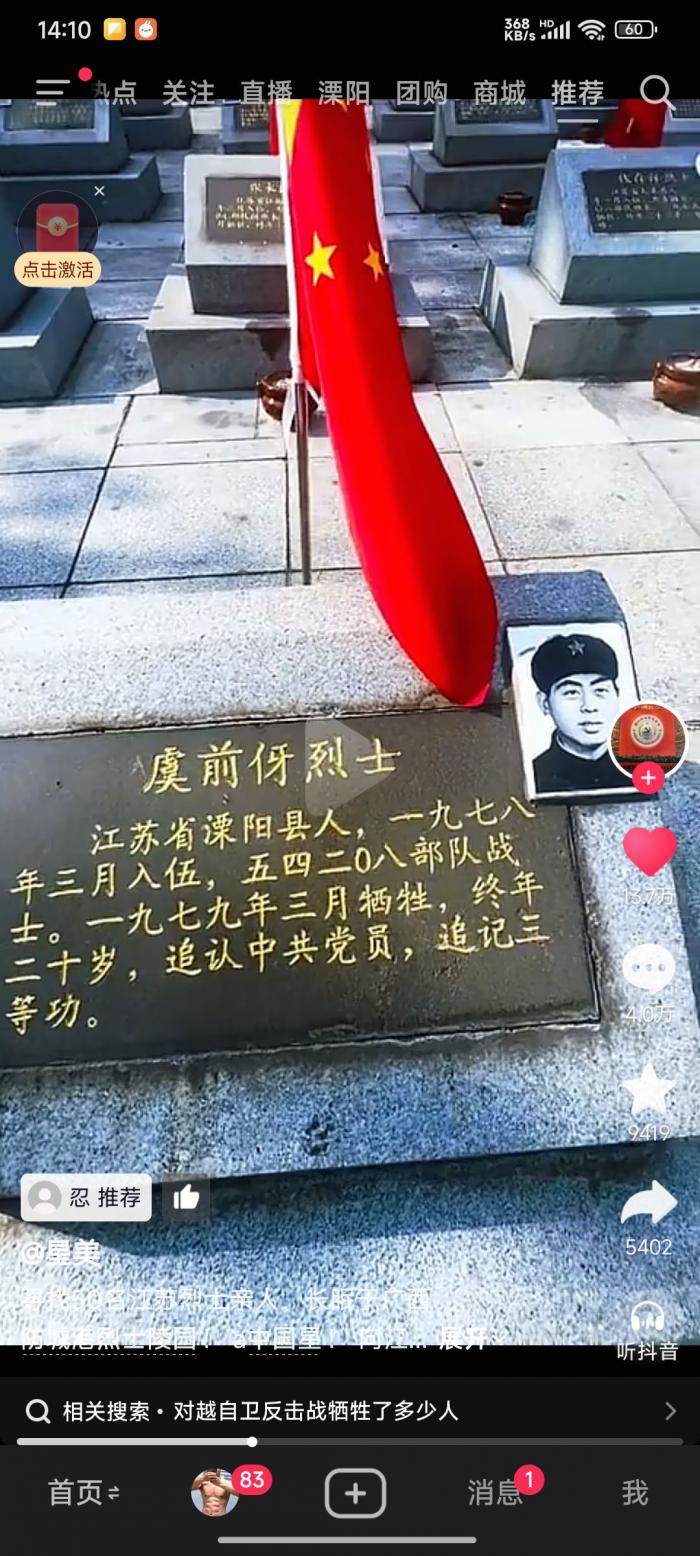 14:10
368
KB/s
HD
60
热点 关注 直播 溧阳 团购 商城 推荐
×
点击激活
虞前伢烈士
江苏省溧阳县人，一九七八
年三月入伍，五四二0八部队战
士。一九七九年三月牺牲，终年
二十岁，追认中共党员，追记三
等功。
13.7万
4.0万
9419
5402
听抖音
忍 推荐
@星美
寻找50名江苏烈士亲人，长眠于广西
防城港烈士陵园！ @中国星！ 向江... 展开
相关搜索 · 对越自卫反击战牺牲了多少人
首页
83
消息
1
我